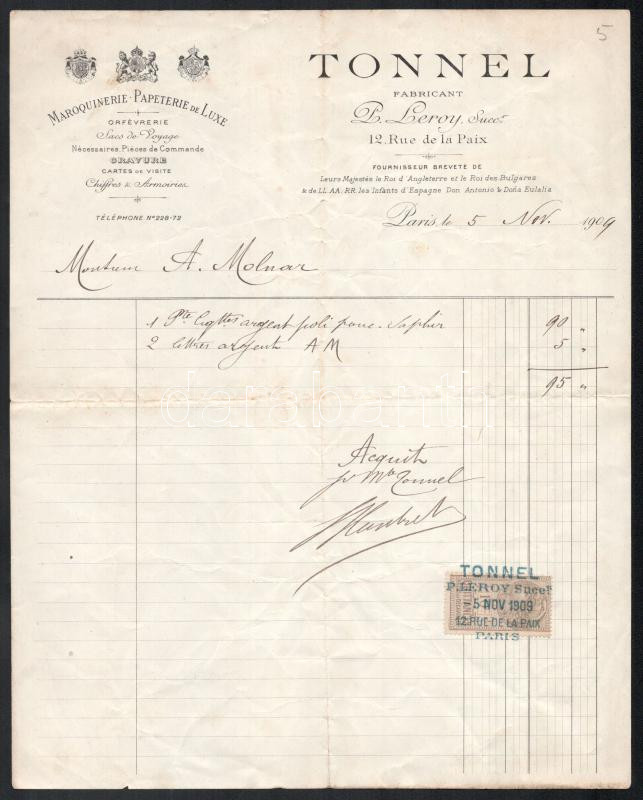 5
TONNEL
FABRICANT
P. Leroy, Succr
12, Rue de la Paix
FOURNISSEUR BREVETÉ DE
Leurs Majestés le Roi d'Angleterre et le Roi des Bulgares
& de LL. AA. RR. les Infants d'Espagne Don Antonio & Doña Eulalia
MAROQUINERIE - PAPETERIE DE LUXE
ORFÈVRERIE
Sacs de Voyage
Nécessaires, Pièces de Commande
GRAVURE
CARTES DE VISITE
Chiffres & Armoiries
TÉLÉPHONE No 228-72
Paris, le 5 Nov. 1909
Monsieur A. Molnar
1 Pte argent poli saphir 90 "
2 lettres argent AM 5 "
95 "
Acquit
pr Mon Tonnel
TONNEL
P. LEROY Succr
-5 NOV 1909
12. RUE DE LA PAIX
PARIS
darabanth